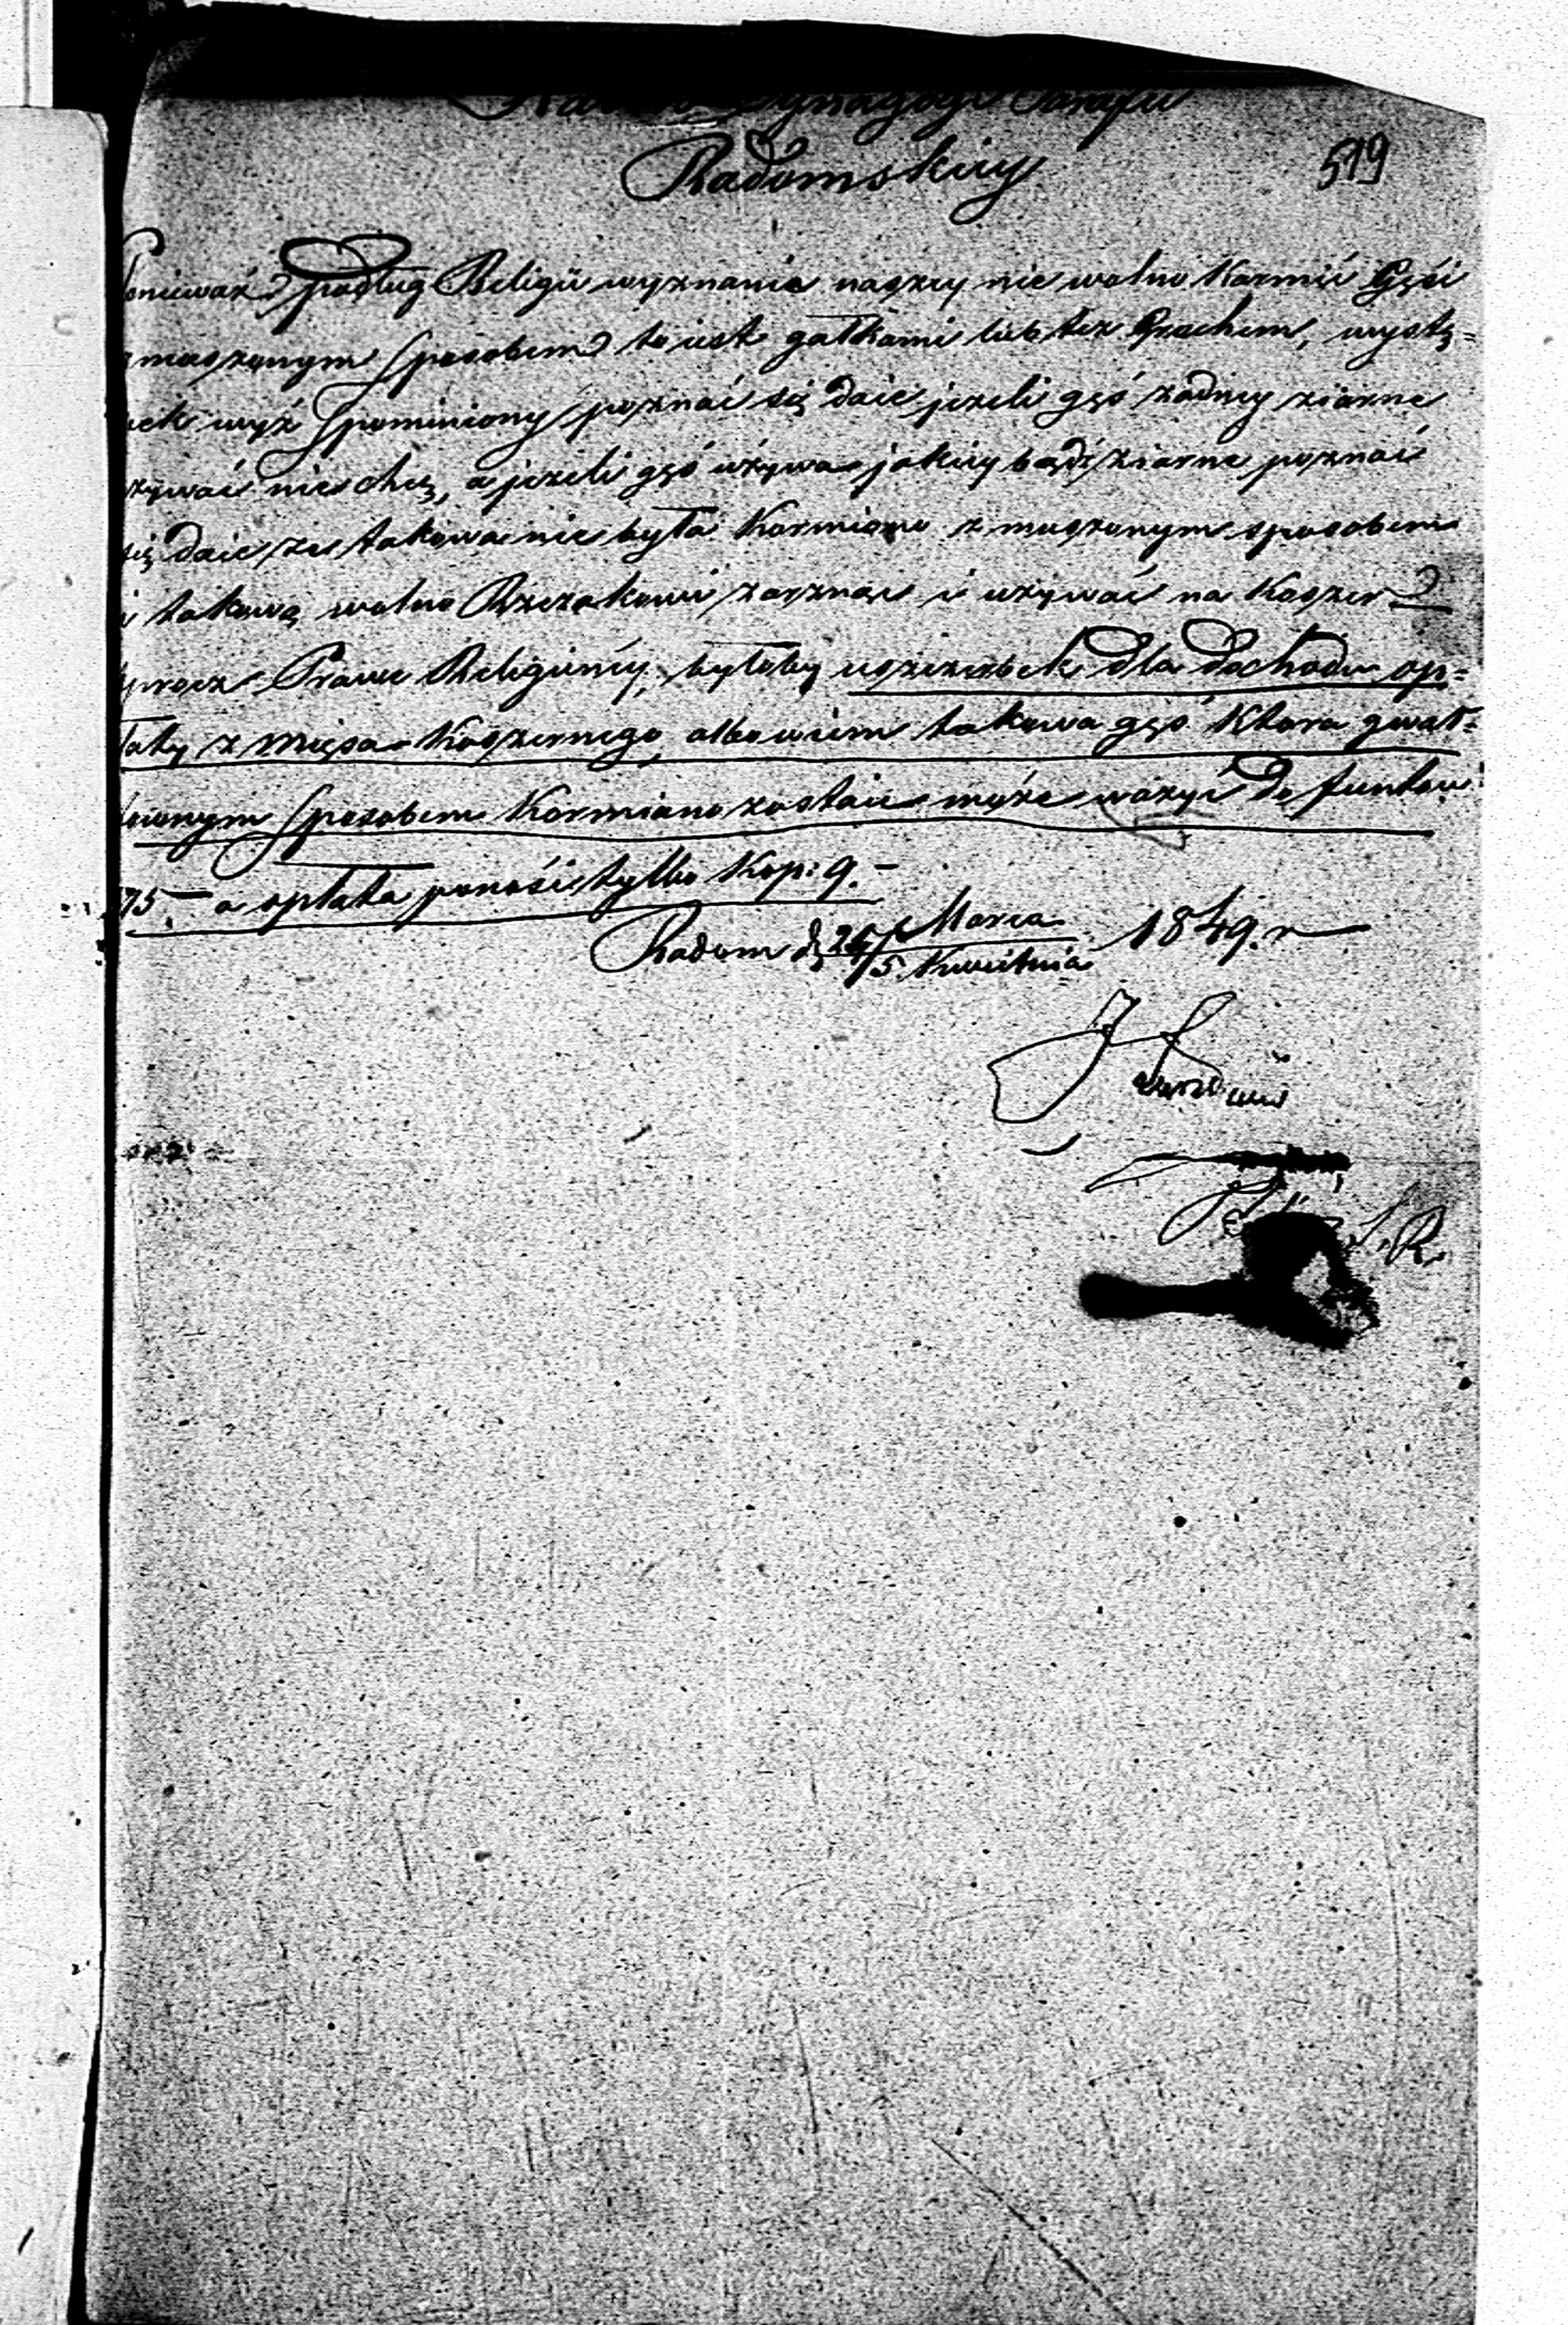 Synagogi Parafii
Radomskiey
519
Poniewarz podług Religii wyznania naszey nie wolno Karmić Gęśi
zmuszonym sposobem to iest gałkami lub też Grochem, wystę=
pek wyż spominiony poznać się daie jezeli gęś żadney ziarne
używać nie chcę, a jezeli gęś używa jakiey bądź ziarne poznać
się daie ze takowa nie była Karmiona zmuszonym sposobem
i takową wolno Rzezakowi zarznąć i używać na Koszer
oprocz Prawu Religiiney, byłoby uszczerbek dla dochodu op=
łaty z mięsa Koszernego, albowiem takowa gęś Ktora gwał=
townym sposobem Karmiano zostaie może ważyć do funtow
175. a opłata ponosi tylko Kop: 9.
Radom d. 24/5 Marca/Kwietnia 1849. r
S. R.